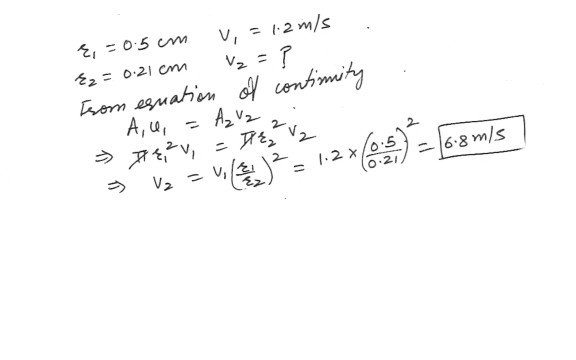 r₁ = 0.5 cm V₁ = 1.2 m/s
r₂ = 0.21 cm V₂ = ?
From equation of continuity
A₁v₁ = A₂V₂
⇒ πr₁²V₁ = πr₂²V₂
⇒ V₂ = V₁(r₁/r₂)² = 1.2 × (0.5/0.21)² = 6.8 m/s